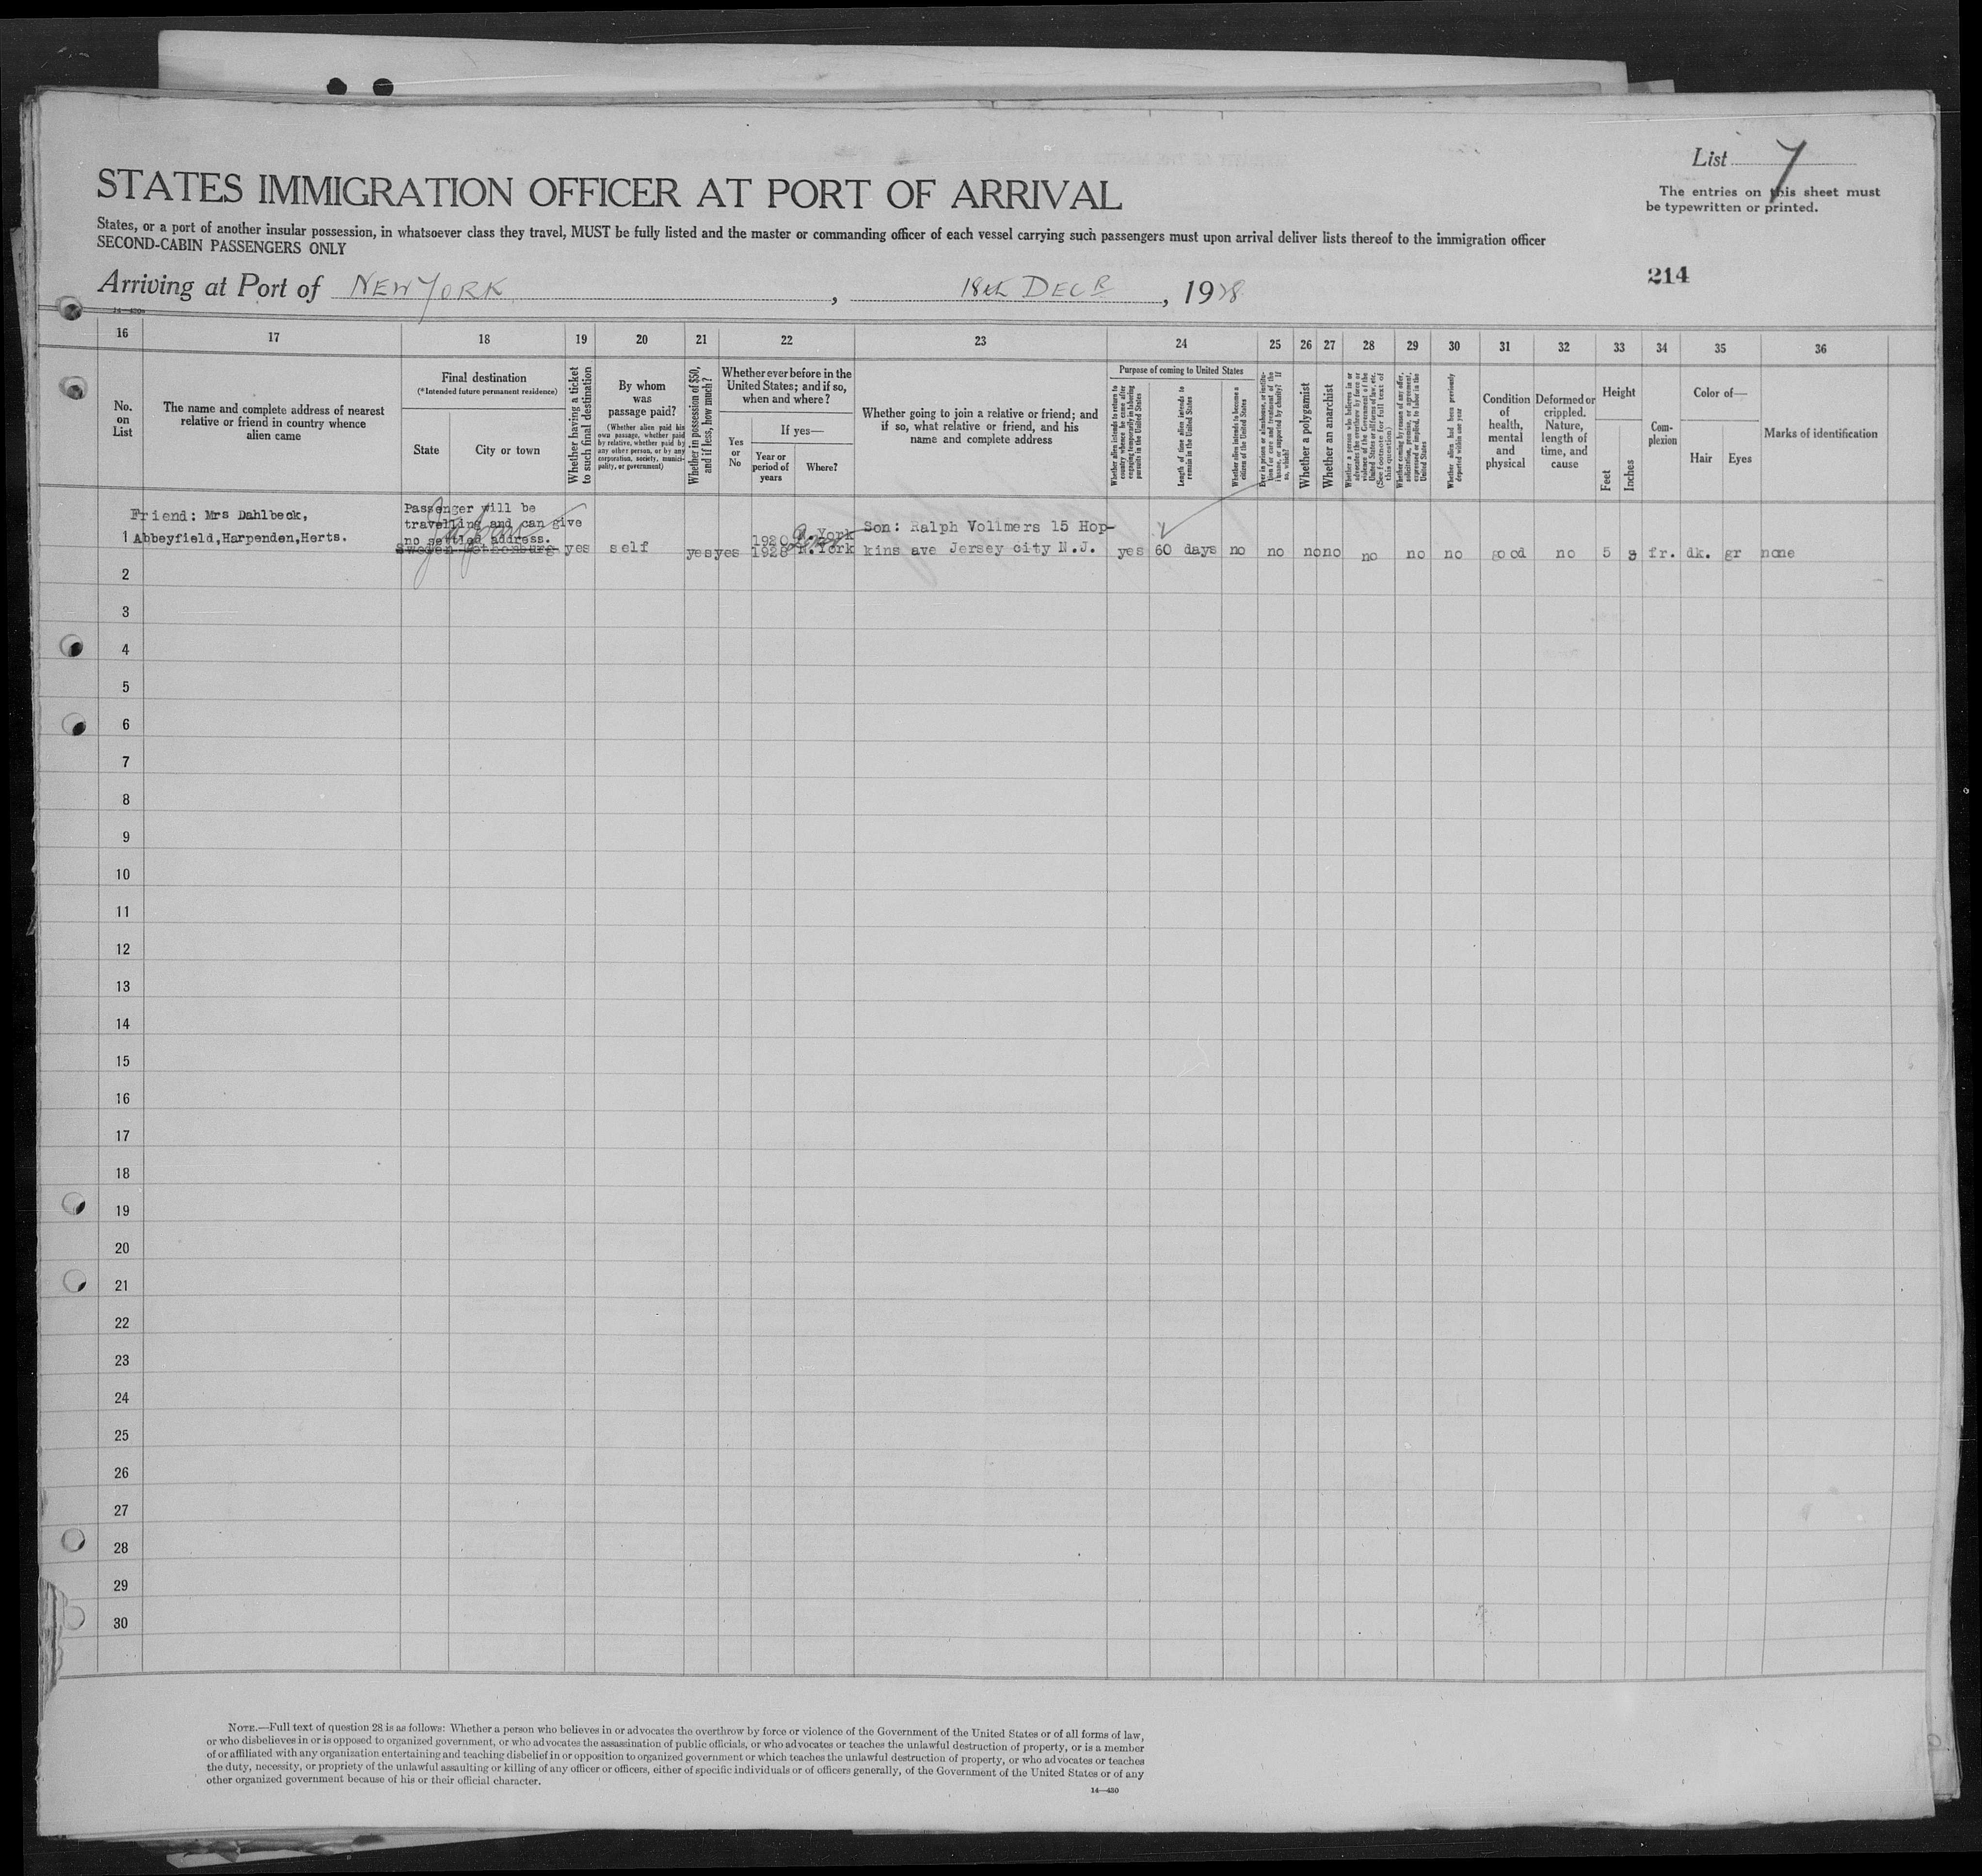 List 7
STATES IMMIGRATION OFFICER AT PORT OF ARRIVAL
The entries on this sheet must
be typewritten or printed.
States, or a port of another insular possession, in whatsoever class they travel, MUST be fully listed and the master or commanding officer of each vessel carrying such passengers must upon arrival deliver lists thereof to the immigration officer
SECOND-CABIN PASSENGERS ONLY
214
Arriving at Port of NEW YORK, 18th DECR, 1928
14—430
16 17 18 19 20 21 22 23 24 25 26 27 28 29 30 31 32 33 34 35 36
No.
on
List
The name and complete address of nearest
relative or friend in country whence
alien came
Final destination
(*Intended future permanent residence)
State
City or town
Whether having a ticket
to such final destination
By whom
was
passage paid?
(Whether alien paid his
own passage, whether paid
by relative, whether paid by
any other person, or by any
corporation, society, munici-
pality, or government)
Whether in possession of $50,
and if less, how much?
Whether ever before in the
United States; and if so,
when and where?
Yes
or
No
If yes—
Year or
period of
years
Where?
Whether going to join a relative or friend; and
if so, what relative or friend, and his
name and complete address
Purpose of coming to United States
Whether alien intends to return to
country whence he came after
engaging temporarily in laboring
pursuits in the United States
Length of time alien intends to
remain in the United States
Whether alien intends to become a
citizen of the United States
Ever in prison or almshouse, or institu-
tion for care and treatment of the
insane, or supported by charity? If
so, which?
Whether a polygamist
Whether an anarchist
Whether a person who believes in or
advocates the overthrow by force or
violence of the Government of the
United States or all forms of law, etc.
(See footnote for full text of
this question)
Whether coming by reason of any offer,
solicitation, promise, or agreement,
expressed or implied, to labor in the
United States
Whether alien had been previously
deported within one year
Condition
of
health,
mental
and
physical
Deformed or
crippled.
Nature,
length of
time, and
cause
Height
Feet
Inches
Com-
plexion
Color of—
Hair
Eyes
Marks of identification
Friend: Mrs Dahlbeck,
1 Abbeyfield,Harpenden,Herts.
Passenger will be
travelling and can give
no settled address.
Sweden Gothenburg yes self yes yes
1920 N.York
1928 N.York
Son: Ralph Vollmers 15 Hop-
kins ave Jersey city N.J. yes 60 days no no no no no no no good no 5 8 fr. dk. gr none
2
3
4
5
6
7
8
9
10
11
12
13
14
15
16
17
18
19
20
21
22
23
24
25
26
27
28
29
30
NOTE.—Full text of question 28 is as follows: Whether a person who believes in or advocates the overthrow by force or violence of the Government of the United States or of all forms of law,
or who disbelieves in or is opposed to organized government, or who advocates the assassination of public officials, or who advocates or teaches the unlawful destruction of property, or is a member
of or affiliated with any organization entertaining and teaching disbelief in or opposition to organized government or which teaches the unlawful destruction of property, or who advocates or teaches
the duty, necessity, or propriety of the unlawful assaulting or killing of any officer or officers, either of specific individuals or of officers generally, of the Government of the United States or of any
other organized government because of his or their official character.
14—430